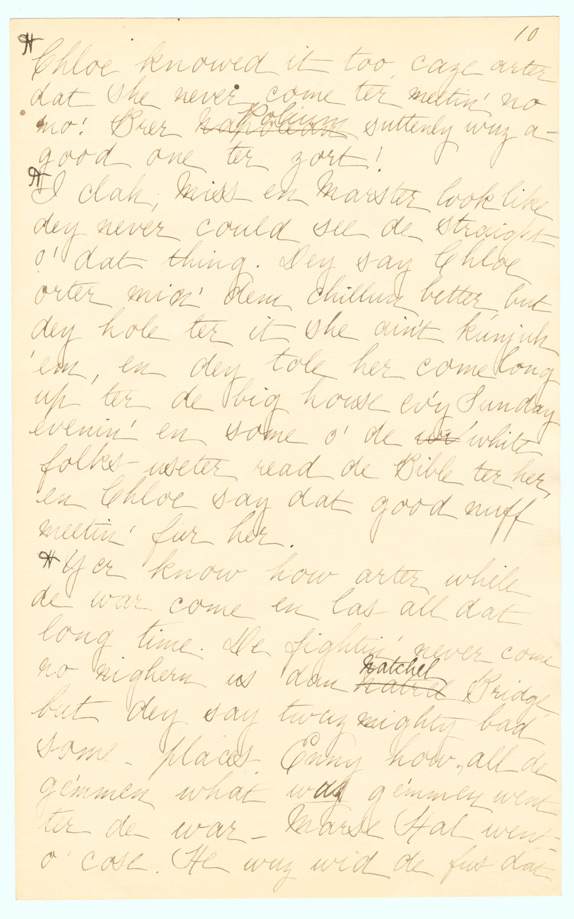 10
"Chloe knowed it too, caze arter
dat she never come ter meetin' no
mo! Brer Robinson suttenly wuz a-
good one ter zort!
"I clah, Miss en Marster look like
dey never could see de straight
o' dat thing. Dey say Chloe
orter min' dem chillun better but
dey hole ter it she ain't kunjuh
'em, en dey tole her come long
up ter de big house ev'y Sunday
evenin' en some o' de white
folks useter read de Bible ter her,
en Chloe say dat good nuff
meetin' fur her.
"Yer know how arter while
de war come en las all dat
long time. De fightin' never come
no nighern us dan Natchel
Bridge
but dey say twuz mighty bad
some - places. Enny how, all de
gemmen what was gemmen went
ter de war - Marse Hal went
o' cose. He wuz wid de fus dat